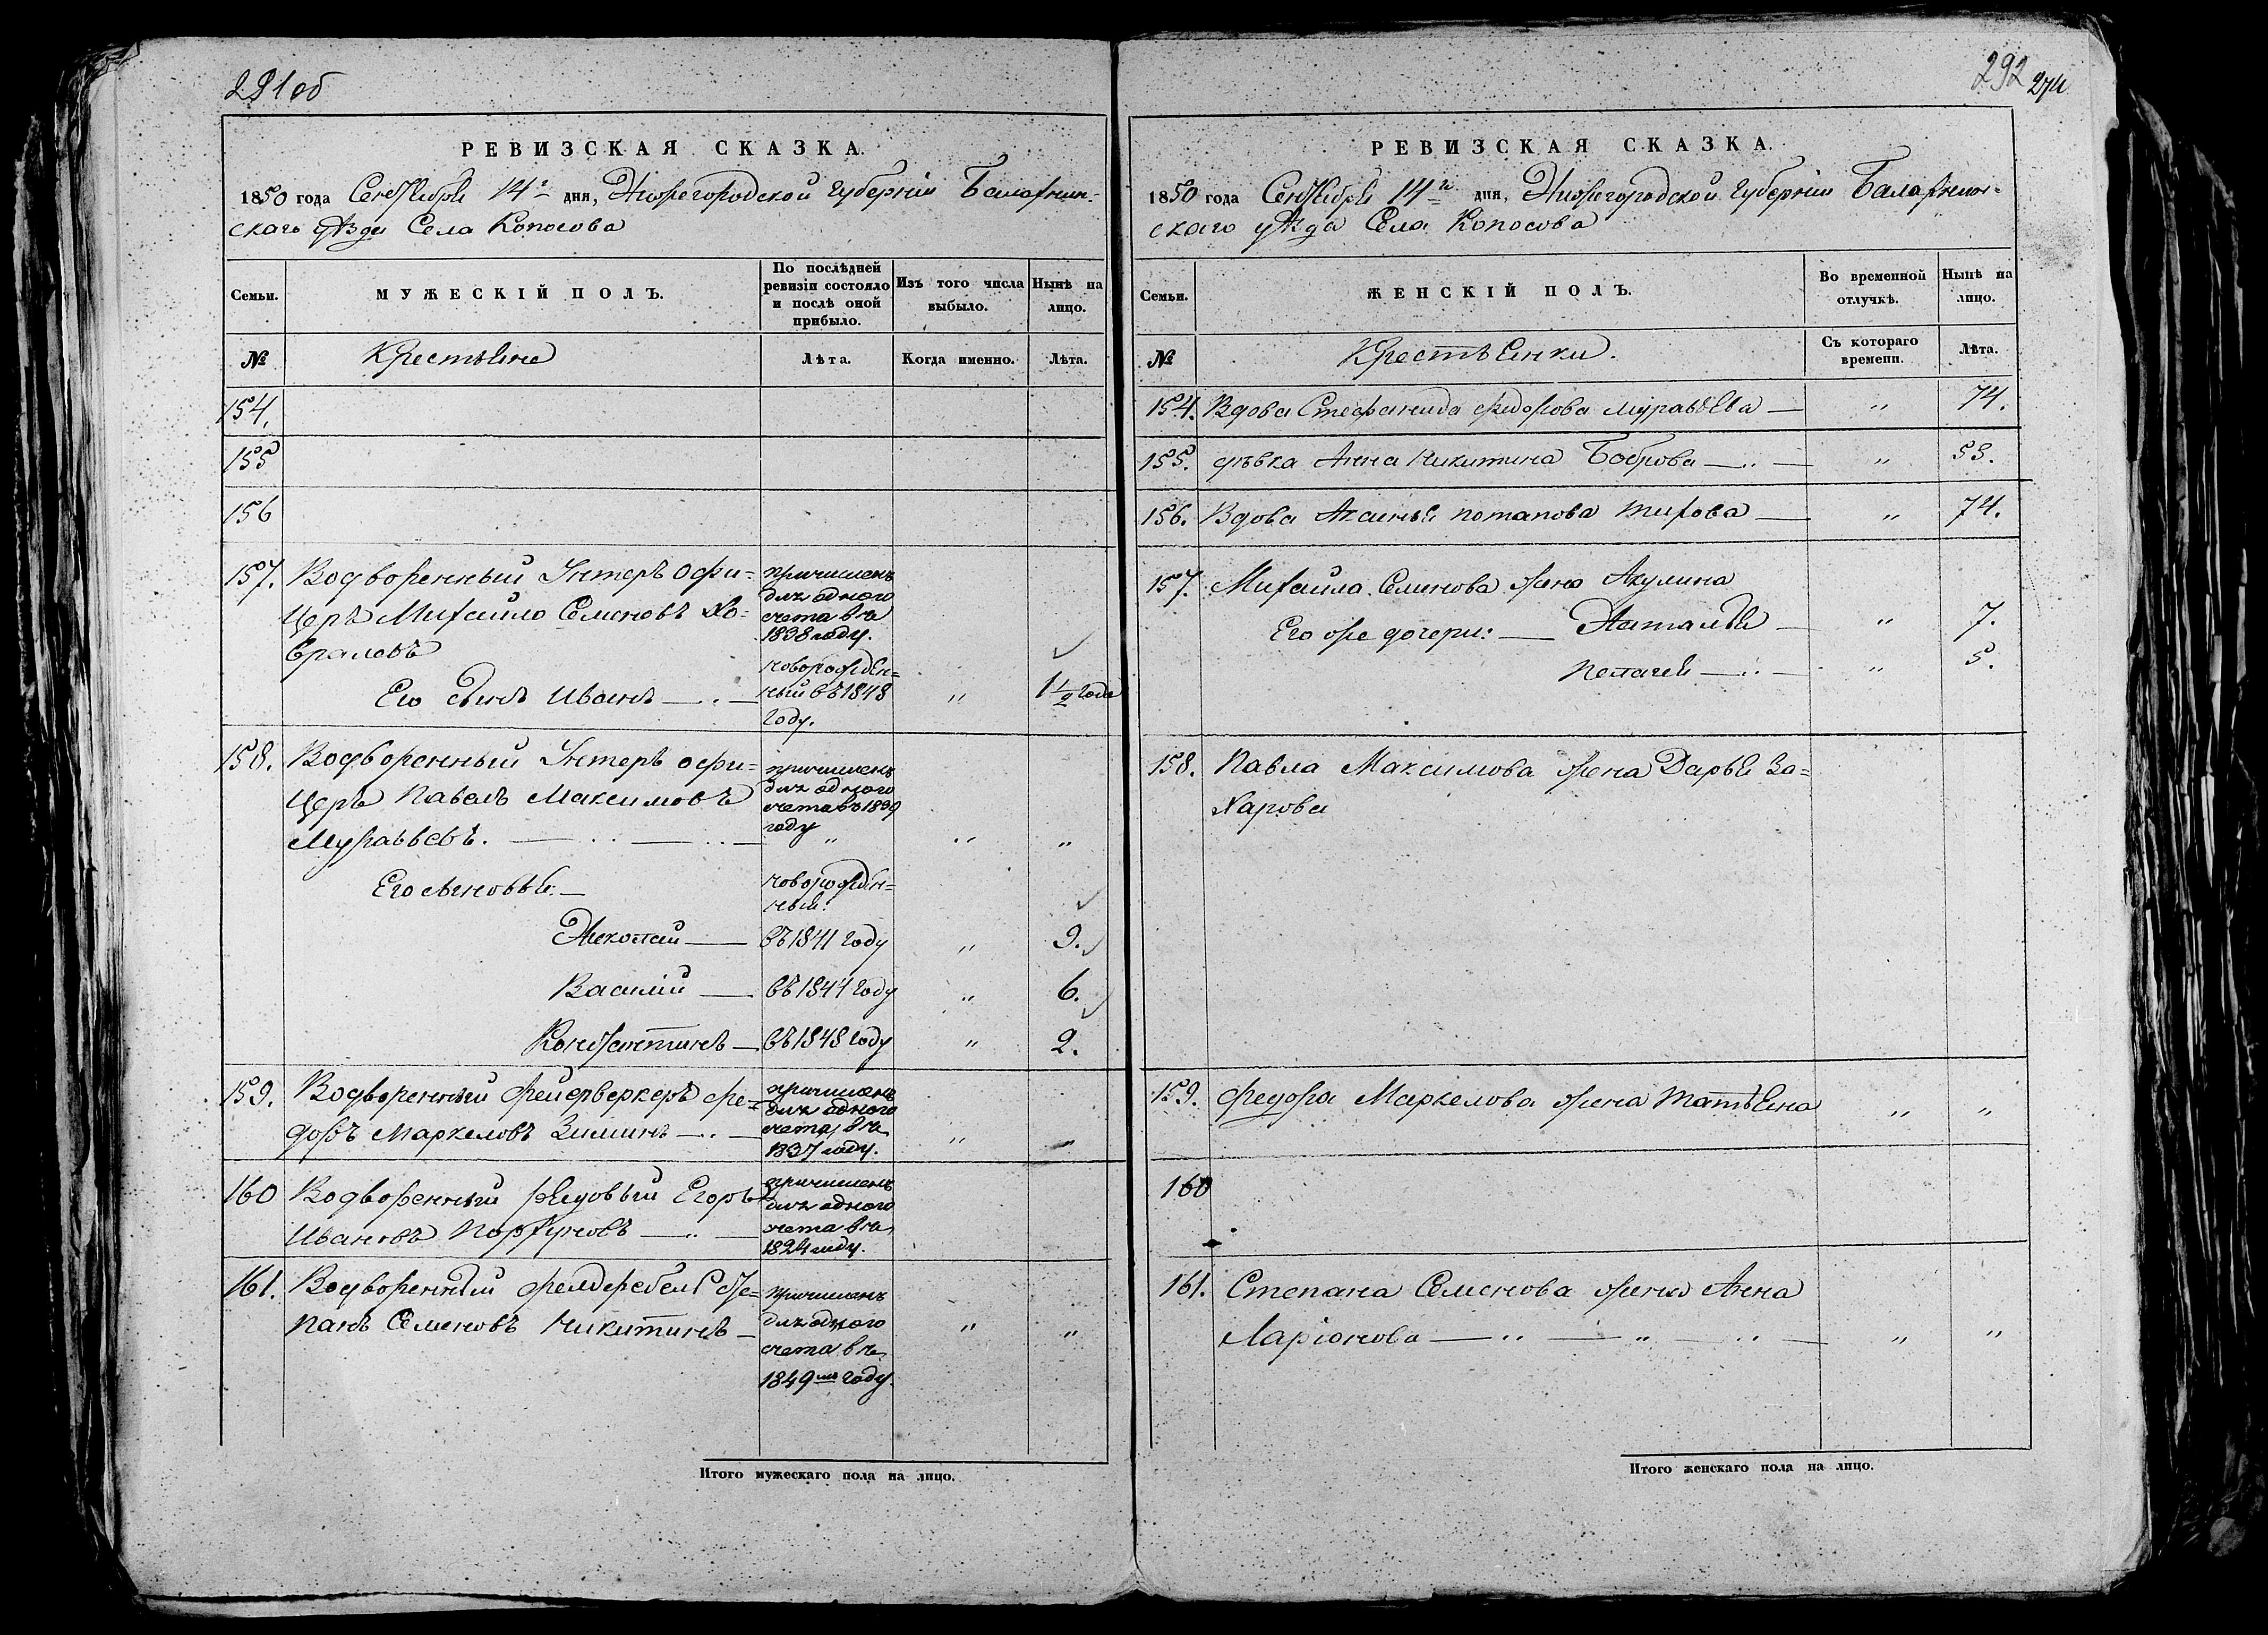 291 об
РЕВИЗСКАЯ СКАЗКА.
1850 года Сентября 14го дня, Нижегородской губернiи Балахнин-
скаго уѣзда Села Копосова
Семьи.
МУЖЕСКIЙ ПОЛЪ.
По послѣдней ревизiи состояло и послѣ оной прибыло.
Изъ того числа выбыло.
Нынѣ на лицо.
№
Крестьяне
Лѣта.
Когда именно.
Лѣта.
154.
155
156
157. Водворенный Унтеръ офи-
церъ Михайло Семеновъ Хо-
враловъ
причисленъ
для одного
счета въ
1838 году.
Его сынъ Иванъ
новорожден=
ный въ 1848
году.
" 1 1/2 года
158. Водворенный Унтеръ офи-
церъ Павелъ Максимовъ
Муравьевъ.
причисленъ
для одного
счета въ 1839
году
" " "
Его сыновья:
новорожден=
ный.
Николай въ 1841 году " 9.
Василiй въ 1844 году " 6.
Константинъ въ 1848 году " 2.
159. Водворенный фейерверкеръ Фе=
доръ Маркеловъ Зиминъ
причисленъ
для одного
счета въ
1837 году.
" "
160 Водворенный рядовый Егоръ
Ивановъ Порхуновъ
причисленъ
для одного
счета въ
1824 году.
161. Водворенный фелдфебель Сте=
панъ Семеновъ Никитинъ
причисленъ
для одного
счета въ
1849мъ году.
" "
Итого мужескаго пола на лицо.
292 274
РЕВИЗСКАЯ СКАЗКА.
1850 года Сентября 14го дня, Нижегородской губернiи Балахнин-
скаго уѣзда Села Копосова
Семьи.
ЖЕНСКIЙ ПОЛЪ.
Во временной отлучкѣ.
Нынѣ на лицо.
№
Крестьянки.
Съ котораго времени.
Лѣта.
154. Вдова Стефанида Федорова Муравьева " 74.
155. дѣвка Анна Никитина Боброва " 53.
156. Вдова Аксинья Потапова Тихова " 74.
157. Михайла Семенова жена Акулина
Его же дочери: Наталья " 7.
Пелагея " 5.
158. Павла Максимова жена Дарья За=
харова
159. Федора Маркелова жена Татьяна " "
160
161. Степана Семенова жена Анна
Ларiонова " "
Итого женскаго пола на лицо.